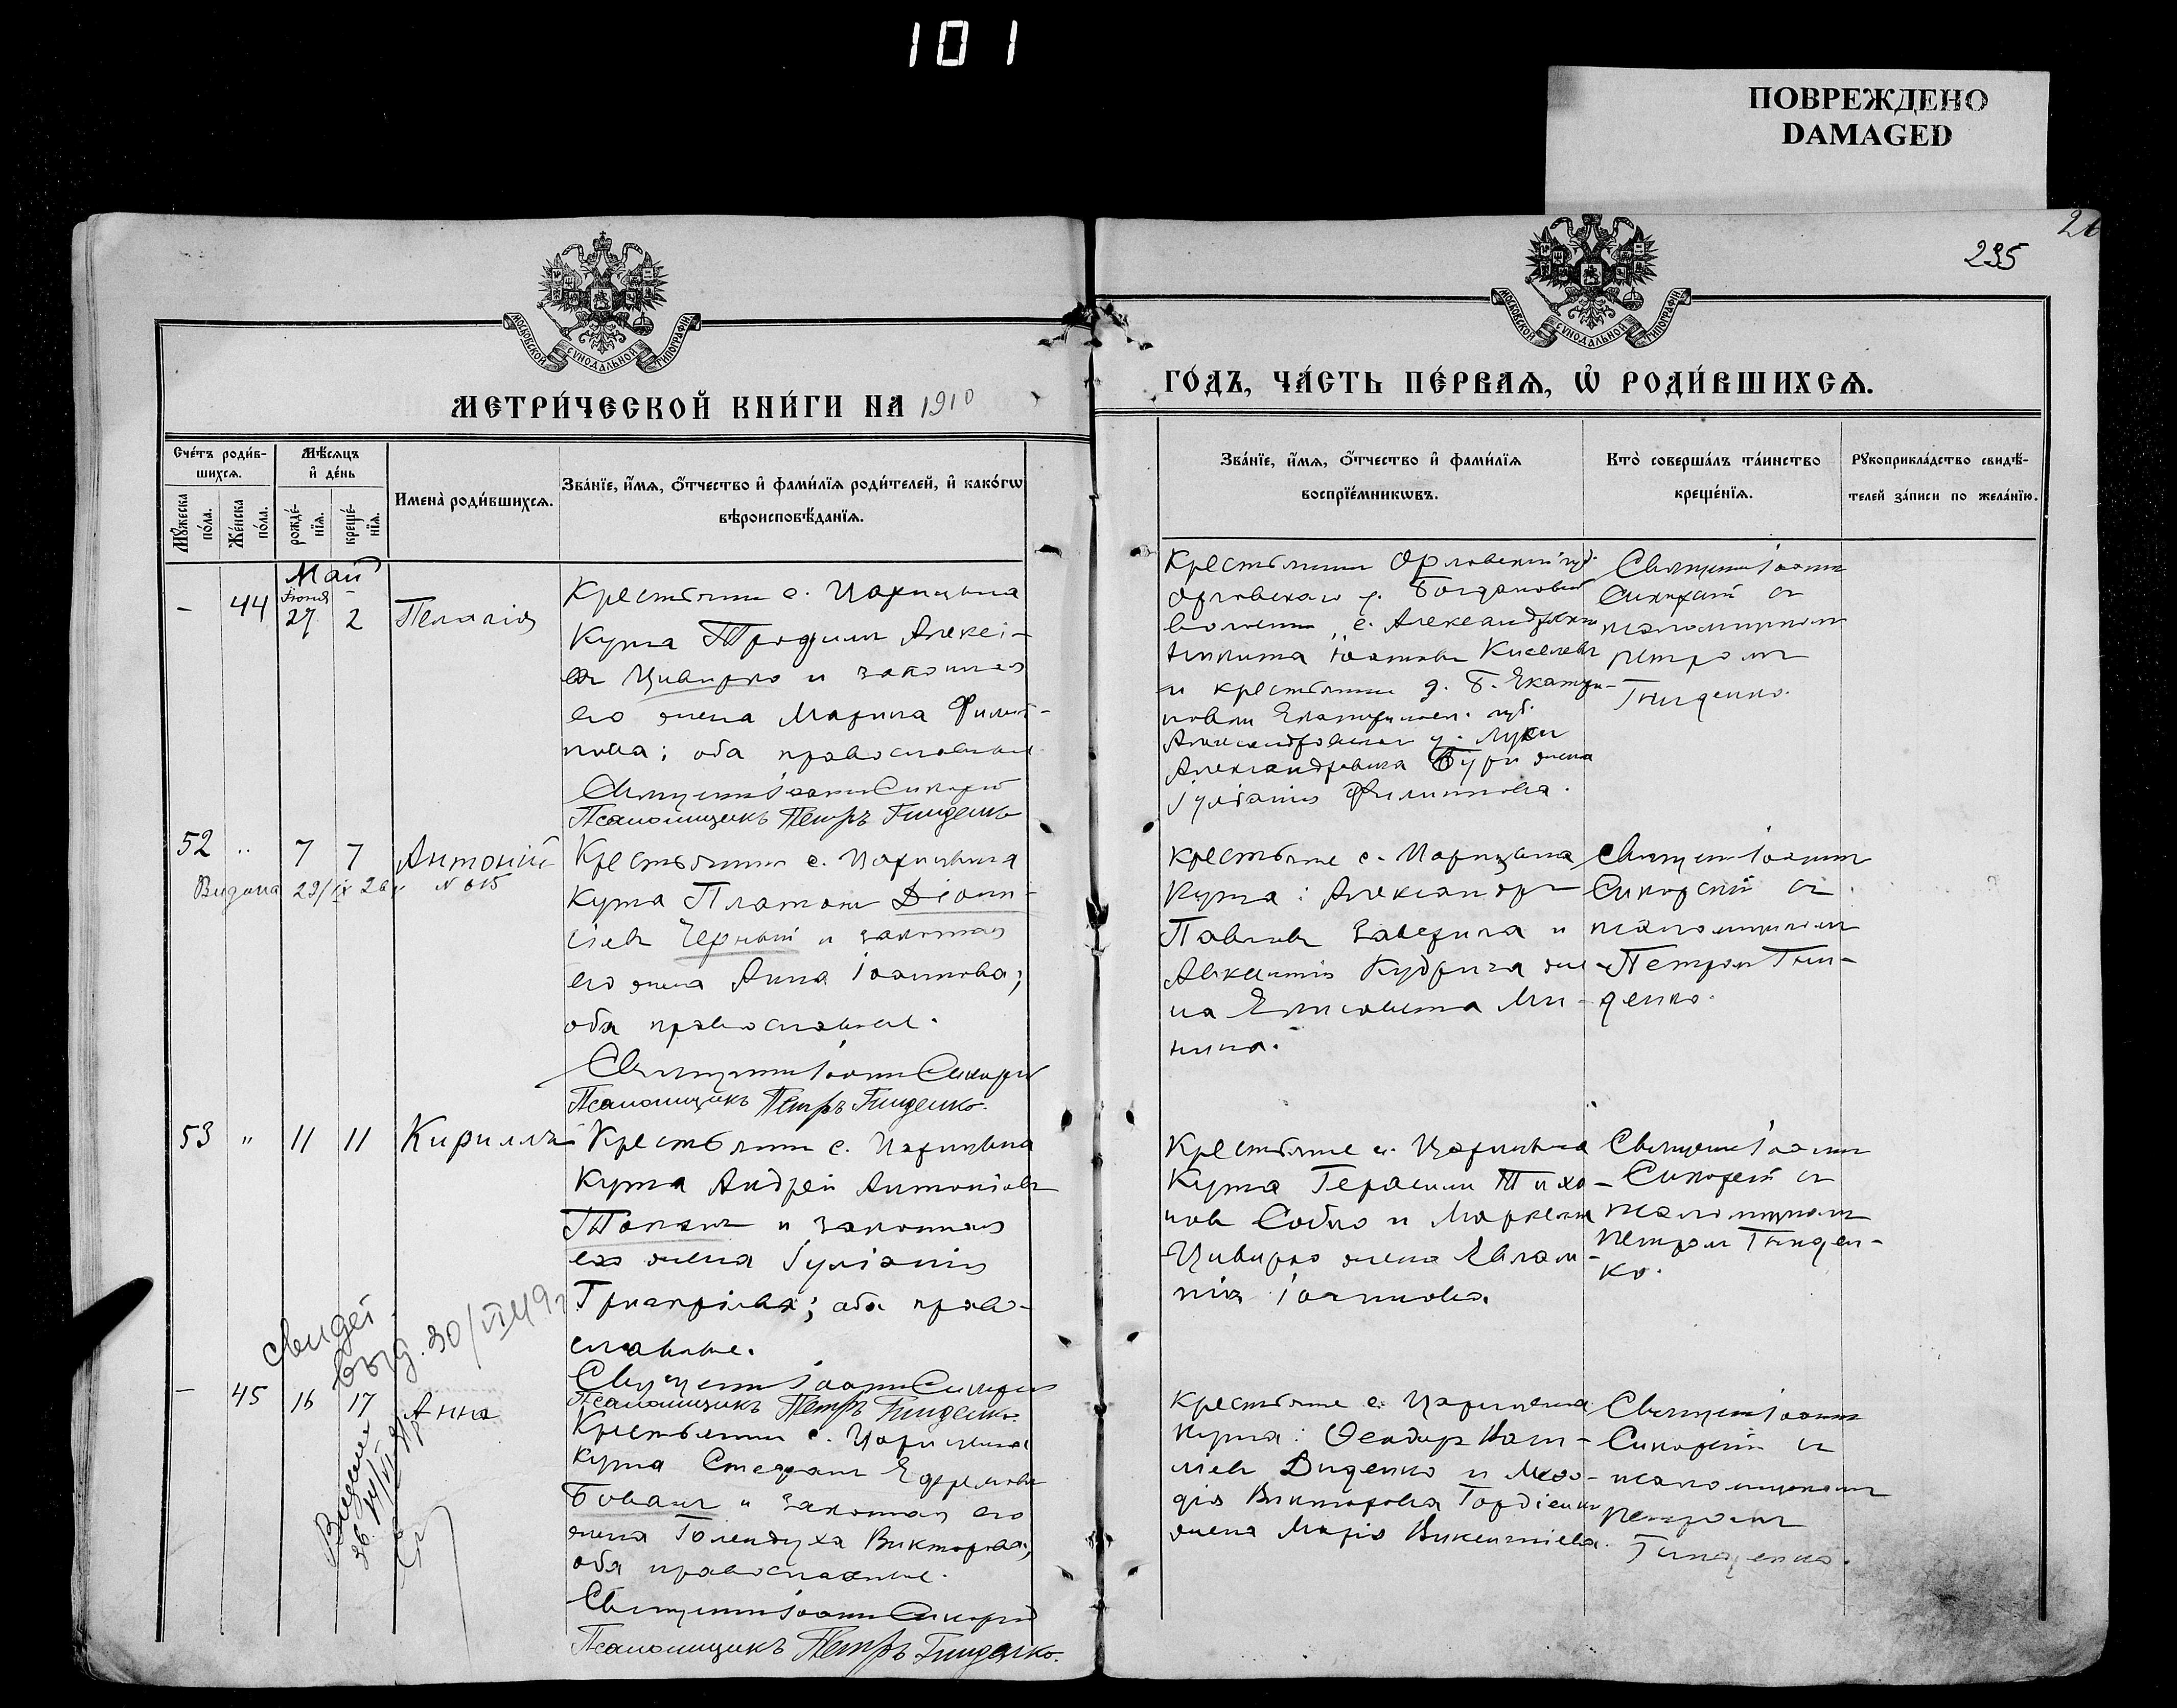 101
ПОВРЕЖДЕНО
DAMAGED
235
МОСКОВСКОЙ СѴНОДАЛЬНОЙ ТИПОГРАФІИ
МОСКОВСКОЙ СѴНОДАЛЬНОЙ ТИПОГРАФІИ
МЕТРИ́ЧЕСКОЙ КНИ́ГИ НА 1910
ГО́ДЪ, ЧА́СТЬ ПЕ́РВАѦ, Ѡ҆ РОДИ́ВШИХСѦ.
Сче́тъ роди́в-
шихсѧ.
Мѣ́сѧцъ
и҆ де́нь
Мꙋ́жеска
по́ла.
Же́нска
по́ла.
рожде́-
нїѧ.
креще́-
нїѧ.
Имена̀ роди́вшихсѧ.
Зва́нїе, и҆́мѧ, ѻ҆́тчество и҆ фами́лїѧ роди́телей, и҆ како́гѡ
вѣроисповѣ́данїѧ.
Зва́нїе, и҆́мѧ, ѻ҆́тчество и҆ фами́лїѧ
воспрїе́мникѡвъ.
Кто̀ соверша́лъ та́инство
креще́нїѧ.
Рꙋкоприкла́дство свидѣ́-
телей за́писи по жела́нїю.
Май
Іюня
- 44 27 2 Пелагія
Крестьянин с. Царицына
Кута Трофим Алексі-
ев Цивирко и законная
его жена Марина Филип-
пова; оба православные
Священник Іоанн Сикорский
Псаломщикъ Петръ Гниденко
Крестьянин Орловской губ.
Орловского у. Богдановской
волости, с. Александровки
Никита Іоаннов Киселев
и крестьянина д. Б. Екатери-
новки Екатериносл. губ.
Александровского у. Луки
Александровича Бури жена
Іуліанія Филиппова.
Священник Іоанн
Сикорский с
псаломщиком
Петром
Гниденко.
52 " 7 7 Антоній
Видана 29/IX 26 г. N 615
Крестьянин с. Царицына
Кута Платон Діони-
сіев Черный и законная
его жена Анна Іоаннова;
оба православные.
Священник Іоанн Сикорский
Псаломщикъ Петръ Гниденко.
Крестьяне с. Царицына
Кута: Александр
Павлов Заверуха и
Авксентія Кудрича же-
на Елисавета Ми-
нина.
Священник Іоанн
Сикорский с
псаломщиком
Петром Гни-
денко.
53 " 11 11 Кириллъ
Крестьянин с. Царицына
Кута Андрей Антоніев
Топан и законная
его жена Іуліанія
Григоріева; оба право-
славные.
Священник Іоанн Сикорский
Псаломщикъ Петръ Гниденко.
Крестьяне с. Царицына
Кута Герасим Тихо-
нов Собко и Маркела
Цивирко жена Евлам-
пія Іоаннова.
Священник Іоанн
Сикорский с
псаломщиком
Петром Гниден-
ко.
свидет.
выд. 30/VI 49 г
- 45 16 17 Анна
Крестьянин с. Царицына
Кута Стефан Ефремов
Бован и законная его
жена Голендуха Викторова;
оба православные.
Священник Іоанн Сикорский
Псаломщикъ Петръ Гниденко.
Крестьяне с. Царицына
Кута: Ѳеодор Васи-
ліев Диденко и Меѳо-
дія Викторова Гордіенко
жена Марія Викентіева.
Священник Іоанн
Сикорский с
псаломщиком
Петром
Гниденко.